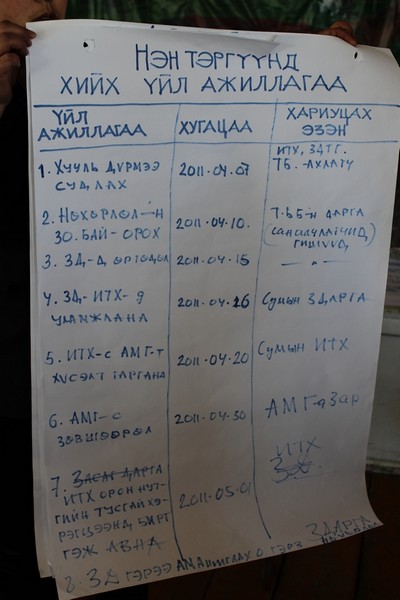 НЭН ТЭРГҮҮНД
ХИЙХ ҮЙЛ АЖИЛЛАГАА
ҮЙЛ АЖИЛЛАГАА
ХУГАЦАА
ХАРИУЦАХ ЭЗЭН
1. ХУУЛЬ ДҮРМЭЭ
СУДЛАХ
2011-04.07
ИТХ, ЗДТГ.
ТБ.-АХЛАГЧ
2. НӨХӨРЛӨЛ-ИЙН
ЗО. БАЙ-ОРОХ
2011-04-10.
Т.ББ-Н ДАРГА
ГИШҮҮД
3. ЗД-Д ӨРГӨДӨЛ
2011-04-15
— " —
4. ЗД- ИТХ-Д
УЛАМЖЛАНА
2011-04-16
Сумын ЗДАРГА
5. ИТХ-с АМГ-т
ХҮСЭЛТ ГАРГАНА
2011-04-20
Сумын ИТХ
6. АМГ-с
ЗӨВШӨӨРӨЛ
2011-04-30
АМГазар
7. ЗАСАГ ДАРГА
ИТХ ОРОН НУТ-
ГИЙН ТУСГАЙ ХЭ-
РЭГЦЭЭНД БҮРТ
ГЭЖ АВНА
2011-05-01
ИТХ
8. ЗД ГЭРЭЭ
ЗДАРГА